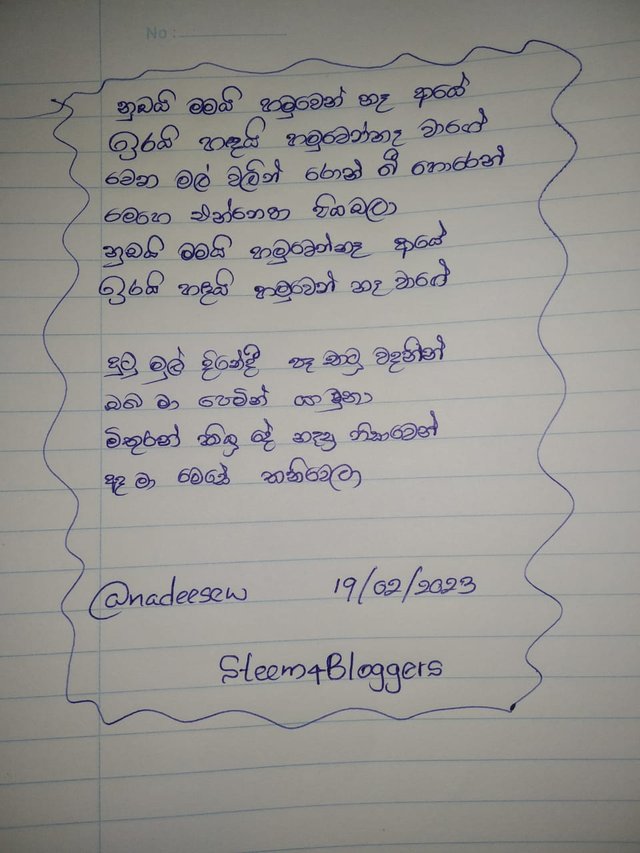 No :
නුඹයි මමයි හමුවෙන් නෑ ආයේ
ඉරයි හඳයි හමුවෙන්නෑ වාගේ
වෙන මල් වලින් රොන් ගී හොරෙන්
මෙහෙ එන්නෙහ පියඹලා
නුඹයි මමයි හමුවෙන්නෑ ආයේ
ඉරයි හඳයි හමුවෙන් නෑ වාගේ
දුටු මුල් දිනේදී පෑ චාටු වදනින්
ඔබ මා පෙමින් යා වුනා
මිතුරන් කියූ දේ නෑසූ නිසාවෙන්
අද මා මෙසේ තනිවෙලා
@nadeesew 19/02/2023
Steem4Bloggers